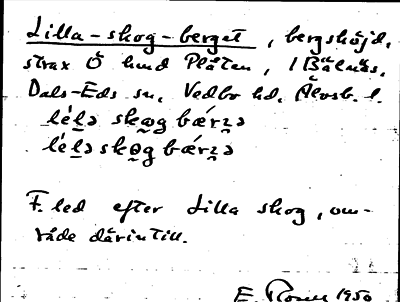 Lilla-skog-berget, bergshöjd,
strax Ö hmd Plåten, 1 Bälnäs,
Dals-Eds sn, Vedbo hd, Älvsb. l.
léḻə sko̱g bǽrẕə
léḻə skɵ̱g bǽrẕə
F. led efter Lilla skog, om-
råde därintill.
E. 1950